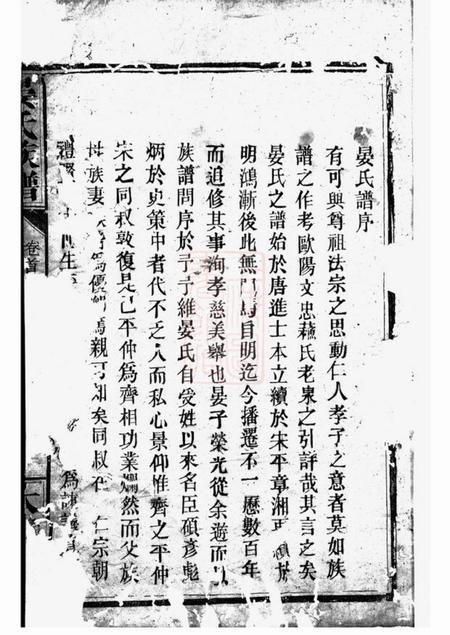 晏氏譜序
有可興尊祖法宗之思動仁人孝子之意者莫如族
譜之作考歐陽文忠蘓氏老泉之引詳哉其言之矣
晏氏之譜始於唐進士本立續於宋平章湘
明鴻漸後此無自明迄今播遷不一歷數百年
而追修其事洵孝慈美舉也晏子榮光從余遊而以
族譜問序於予予維晏氏自受姓以來名臣碩彥彪
炳於史策中者代不乏人而私心景仰惟齊之平仲
宋之同叔敦復是已平仲為齊相功業爛然而父族
母族妻親可知矣同叔在仁宗朝
禮 生 為
晏氏族譜
卷首